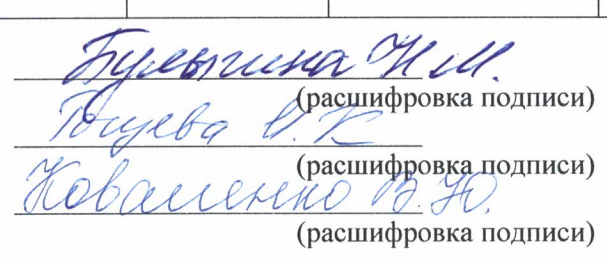 Булыгина Н.М.
(расшифровка подписи)
И.К
(расшифровка подписи)
Коваленко В.Ю.
(расшифровка подписи)